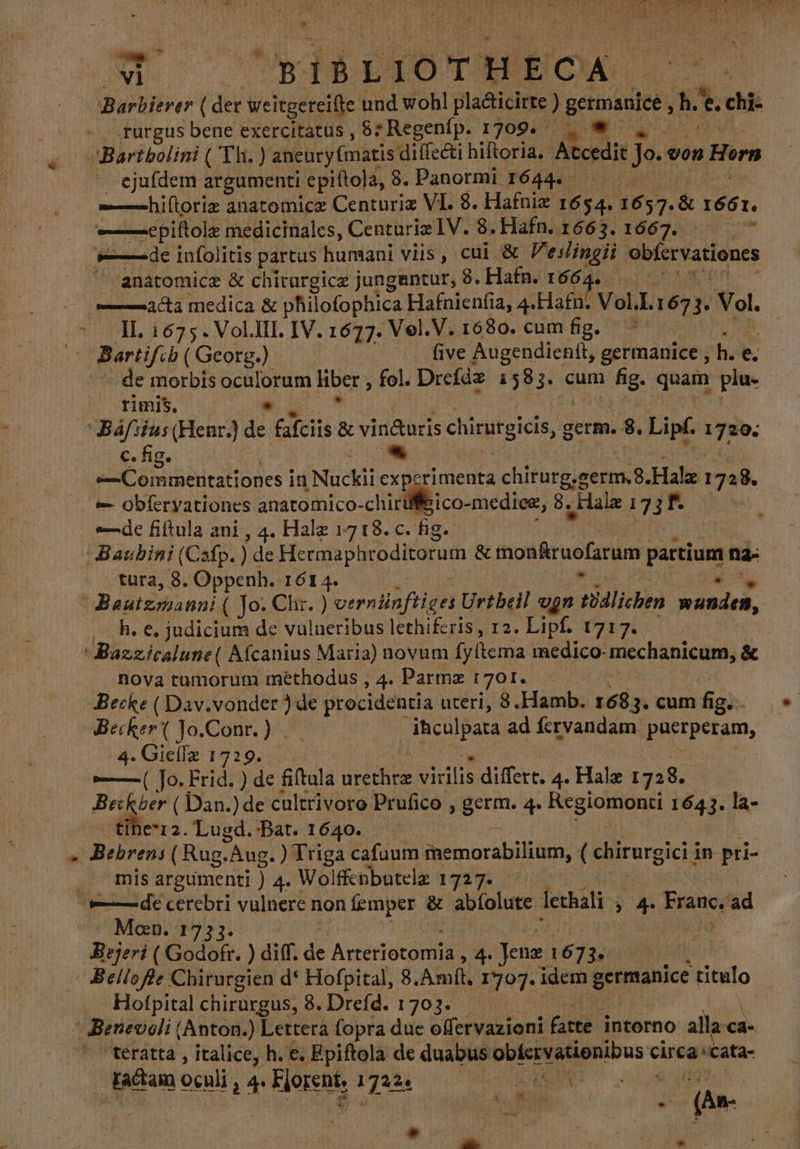 vi BIBLIOTHECA
Barbierer ( der weitgereiſte und wohl placticirte ) germanice , h. e. chi-
rurgus bene exercitatus , 8: Regenſp. 1709.
Bartholini ( Th. ) aneuryſmatis diſſecti hiſtoria. Accedit Jo. von Horn
ejuſdem argumenti epiſtola, 8. Panormi 1644.
——hiſtoriæ anatomicæ Centuriæ VI. 8. Hafniæ 1654. 1657. & 1661.
——epiſtolæ medicinales, Centuriæ IV. 8. Hafn. 1663. 1667.
——de inſolitis partus humani viis, cui & Veslingii obſervationes
anatomicæ & chirurgicæ junguntur, 8. Hafn. 1664.
——acta medica & philoſophica Hafnienſia, 4. Hafn. Vol. I. 1673. Vol.
II. 1675. Vol. III. IV. 1677. Vol. V. 1680. cum fig.
Bartiſch ( Georg.) ſive Augendienſt, germanice , h. e.
de morbis oculorum liber , fol. Dreſdæ 1583. cum fig. quam plu-
rimis.
Báſsius (Henr.) de faſciis & vincturis chirurgicis, germ. 8. Lipſ. 1720.
c. fig.
—Commentationes in Nuckii experimenta chirurg. germ. 8. Halæ 1728.
— obſervationes anatomico-chirurgico-medicæ, 8. Halæ 173
—de fiſtula ani , 4. Halæ 1718. c. fig.
Bauhini (Caſp. ) de Hermaphroditorum & monſtruoſarum partium na-
tura, 8. Oppenh. 1614.
Bautzmanni ( Jo. Chr. ) vernünftiges Urtheil von tödlichen wunden,
h. e. judicium de vulneribus lethiferis, 12. Lipſ. 1717.
Bazzicalune ( Aſcanius Maria) novum ſyſtema medico-mechanicum, &
nova tumorum methodus , 4. Parmæ 1701.
Becke ( Dav. vonder ) de procidentia uteri, 8. Hamb. 1683. cum fig.
Becker ( Jo. Conr. ) inculpata ad ſervandam puerperam,
4. Gieſſæ 1729.
——( Jo. Frid. ) de fiſtula urethræ virilis diſſert. 4. Halæ 1728.
Beckher ( Dan.) de cultrivoro Pruſico , germ. 4. Regiomonti 1643. la-
tine 12. Lugd. Bat. 1640.
Behrens ( Rug. Aug. ) Triga caſuum memorabilium, ( chirurgici in pri-
mis argumenti ) 4. Wolffenbutelæ 1727.
——de cerebri vulnere non ſemper & abſolute lethali , 4. Franc. ad
Mœn. 1733.
Bejeri ( Godofr. ) diſſ. de Arteriotomia , 4. Jenæ 1673.
Belloſte Chirurgien d' Hoſpital, 8. Amſt. 1707. idem germanice titulo
Hoſpital chirurgus, 8. Dreſd. 1703.
Benevoli (Anton.) Lettera ſopra due oſſervazioni fatte intorno alla ca-
teratta , italice, h. e. Epiſtola de duabus obſervationibus circa cata-
ractam oculi , 4. Florent. 1722.
(An-